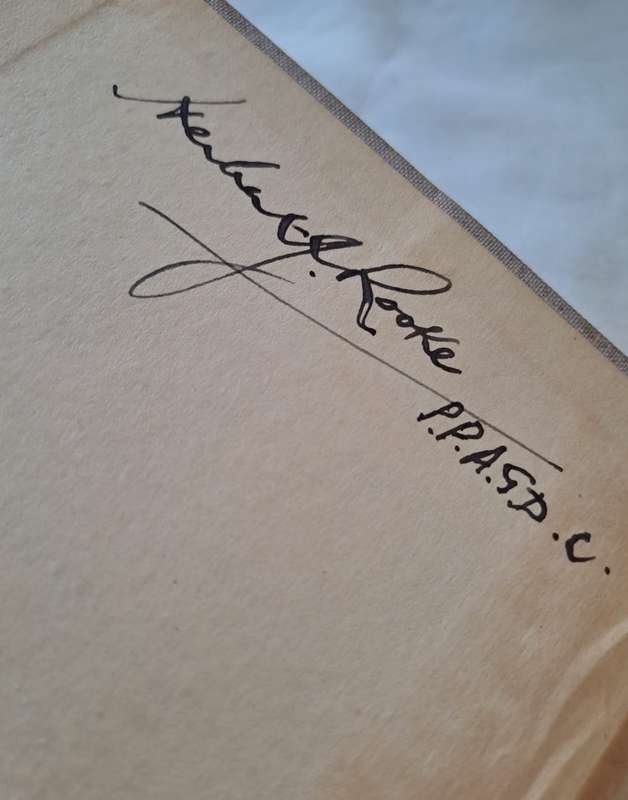 Herbert J. Rooke
P.P.A.G.D.C.